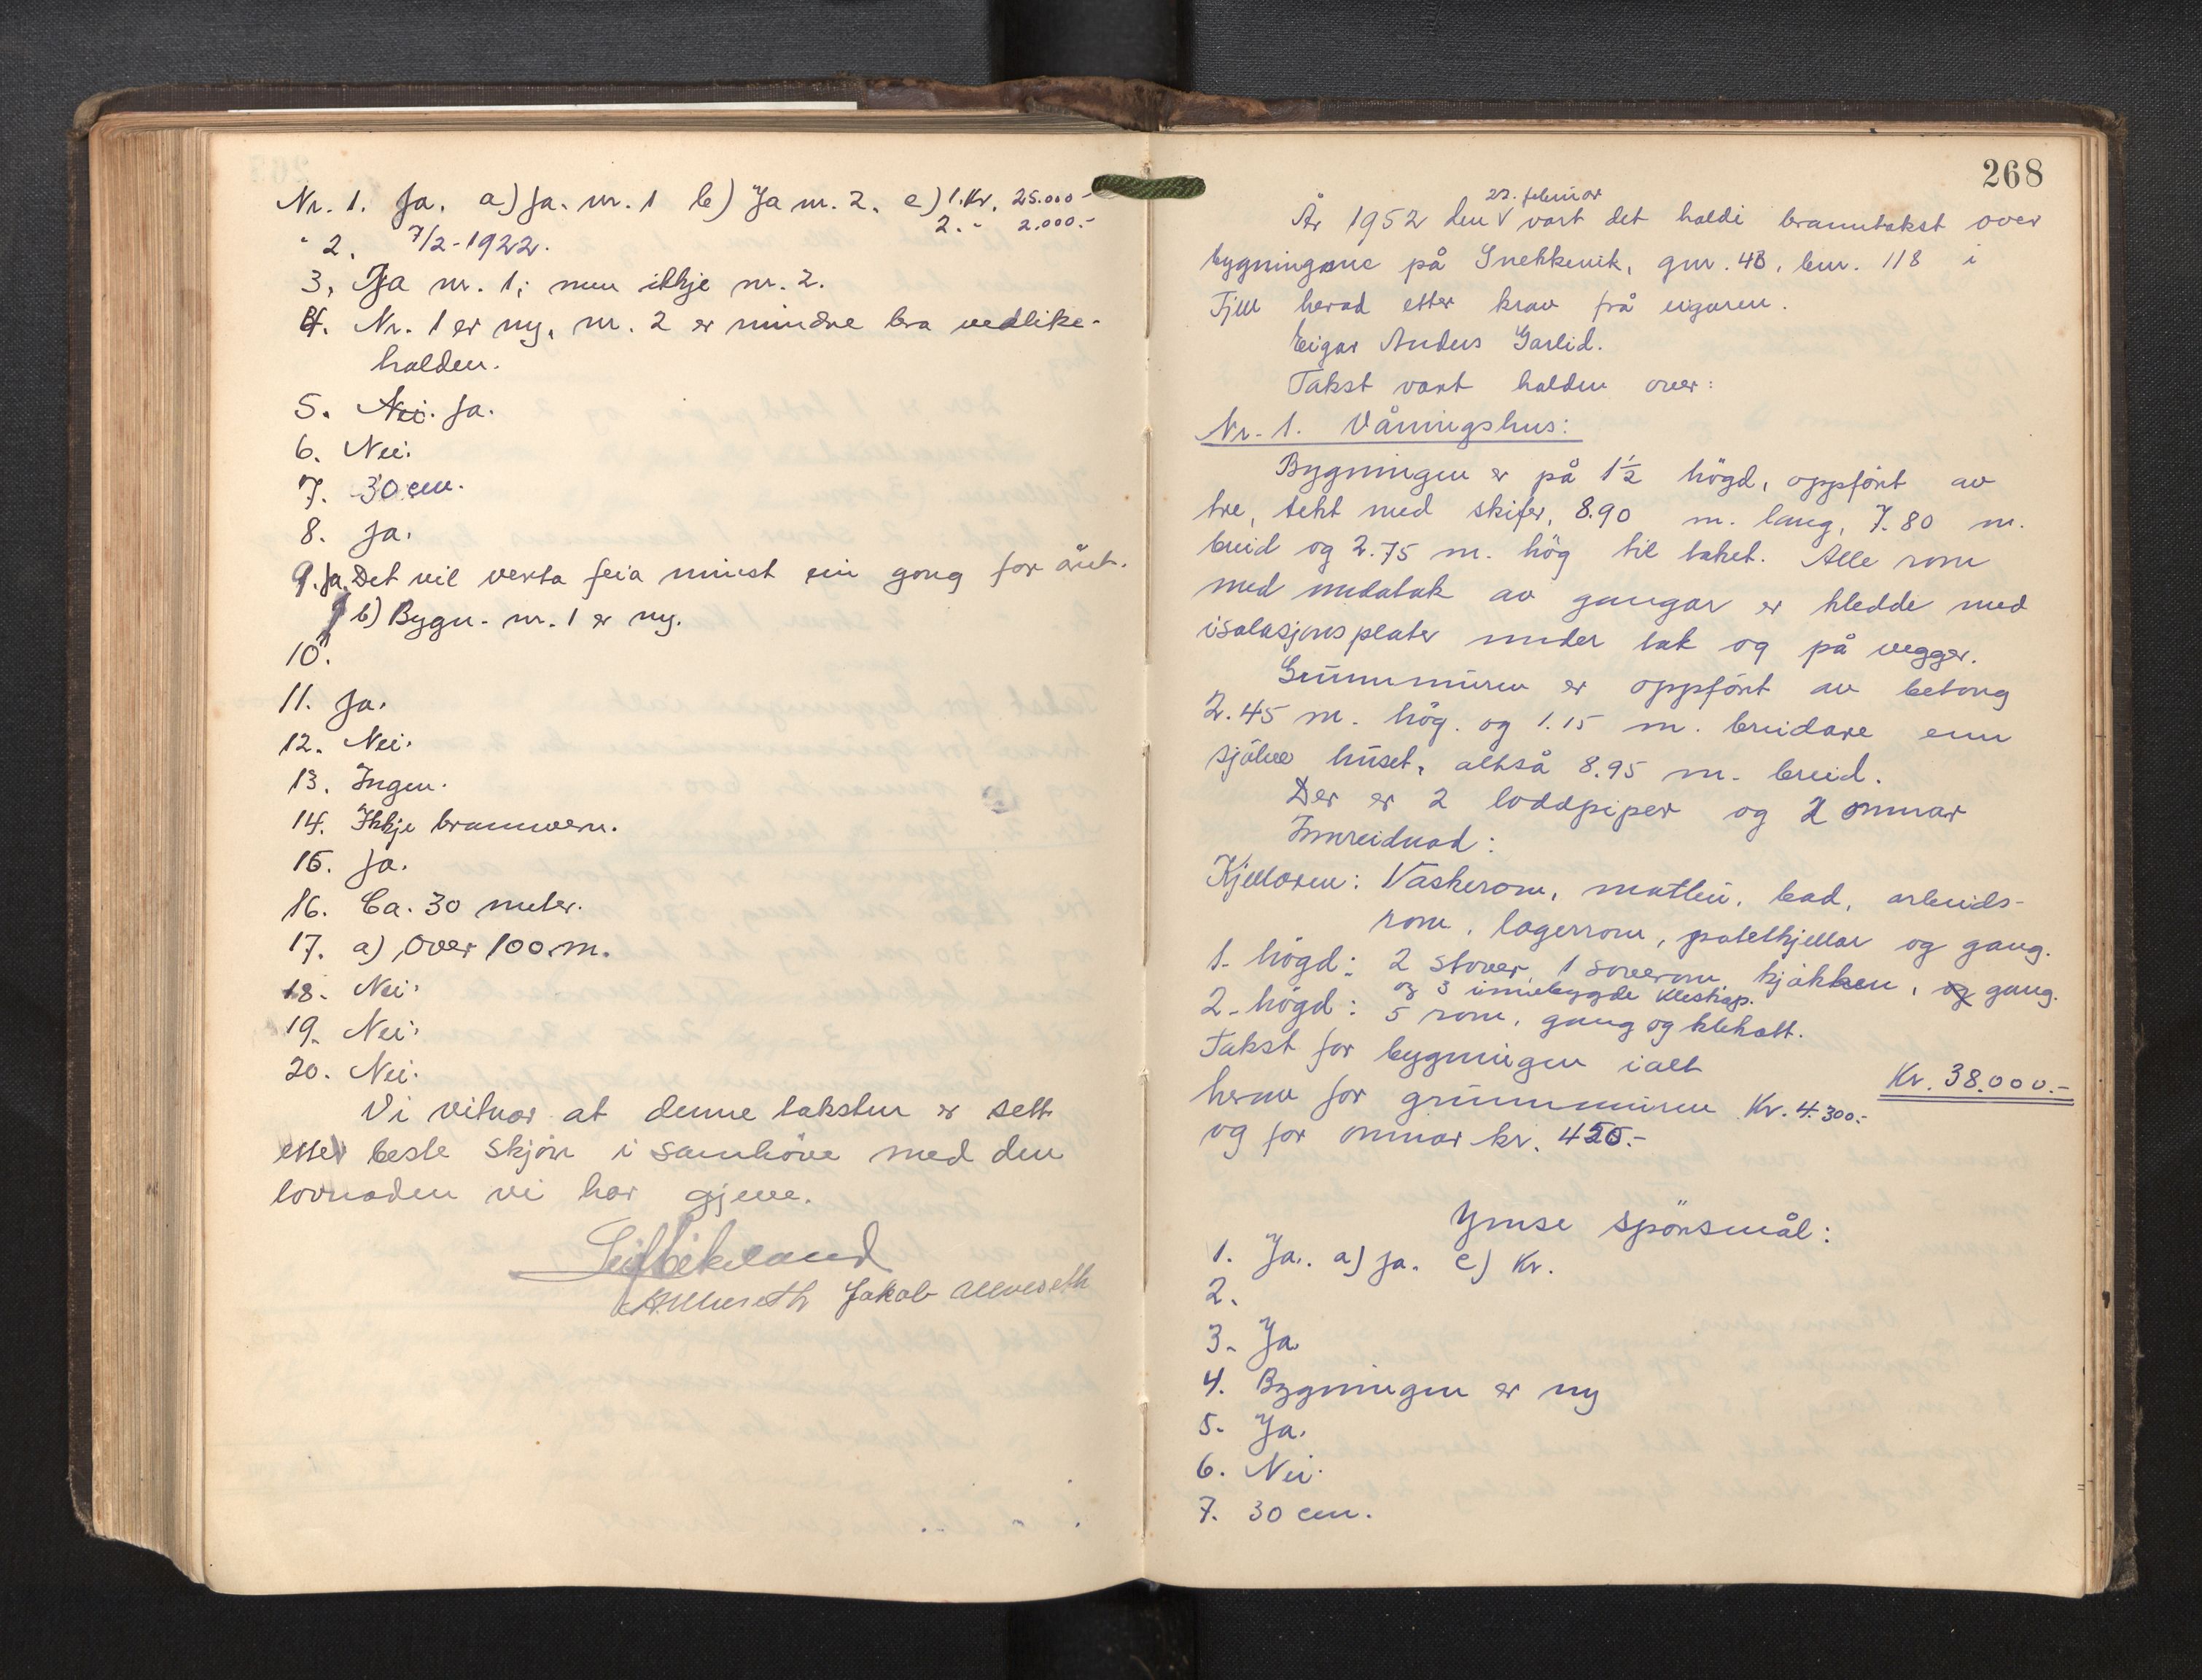 Nr. 1. Ja. a) Ja. nr. 1 b) Ja nr. 2. c) 1. Kr. 25.000.-
2. " 2.000.-
" 2. 7/2-1922.
3. Ja nr. 1; men ikkje nr. 2.
4. Nr. 1 er ny, nr. 2 er mindre bra vedlike-
halden.
5. Nei. Ja.
6. Nei.
7. 30 cm.
8. Ja.
9. Ja. Det vil verta feia minst ein gong for året.
b) Bygn. nr. 1 er ny.
10.
11. Ja.
12. Nei.
13. Ingen.
14. Ikkje brannvern.
15. Ja.
16. Ca. 30 meter.
17. a) Over 100 m.
18. Nei.
19. Nei.
20. Nei.
Vi vitnar at denne taksten er sett
etter beste skjøn i samhöve med den
lovnaden vi har gjeve.
Jakob
268
År 1952 den 22. februar vart det haldi branntakst over
bygningane på Snekkevik, gnr. 48, bnr. 118 i
Fjell herad etter krav frå eigaren.
Eigar Anders Garlid.
Takst vart halden over:
Nr. 1. Våningshus:
Bygningen er på 1½ högd, oppfört av
tre, tekt med skifer, 8.90 m. lang, 7.80 m.
breid og 2.75 m. hög til taket. Alle rom
med undatak av gangar er kledde med
isolasjonsplater under tak og på vegger.
Grunnmuren er oppfört av betong
2.45 m. hög. og 1.15 m. breidare enn
sjölve huset, altså 8.95 m. breid.
Der er 2 loddpiper og 2 omnar
Innreidnad:
Kjellaren: Vaskerom, matbu, bad, arbeids-
rom, lagerrom, potetkjellar og gang.
1. högd: 2 stover, 1 soverom, kjökken, og gang.
og 3 innebygde kleskap.
2. högd: 5 rom, gang og klekott.
Takst for bygningen ialt Kr. 38.000.-
herav for grunnmuren Kr. 4.300.-
og for omnar kr. 450.-
Ymse spörsmål:
1. Ja. a) Ja. c) Kr.
2.
3. Ja
4. Bygningen er ny
5. Ja.
6. Nei.
7. 30 cm.